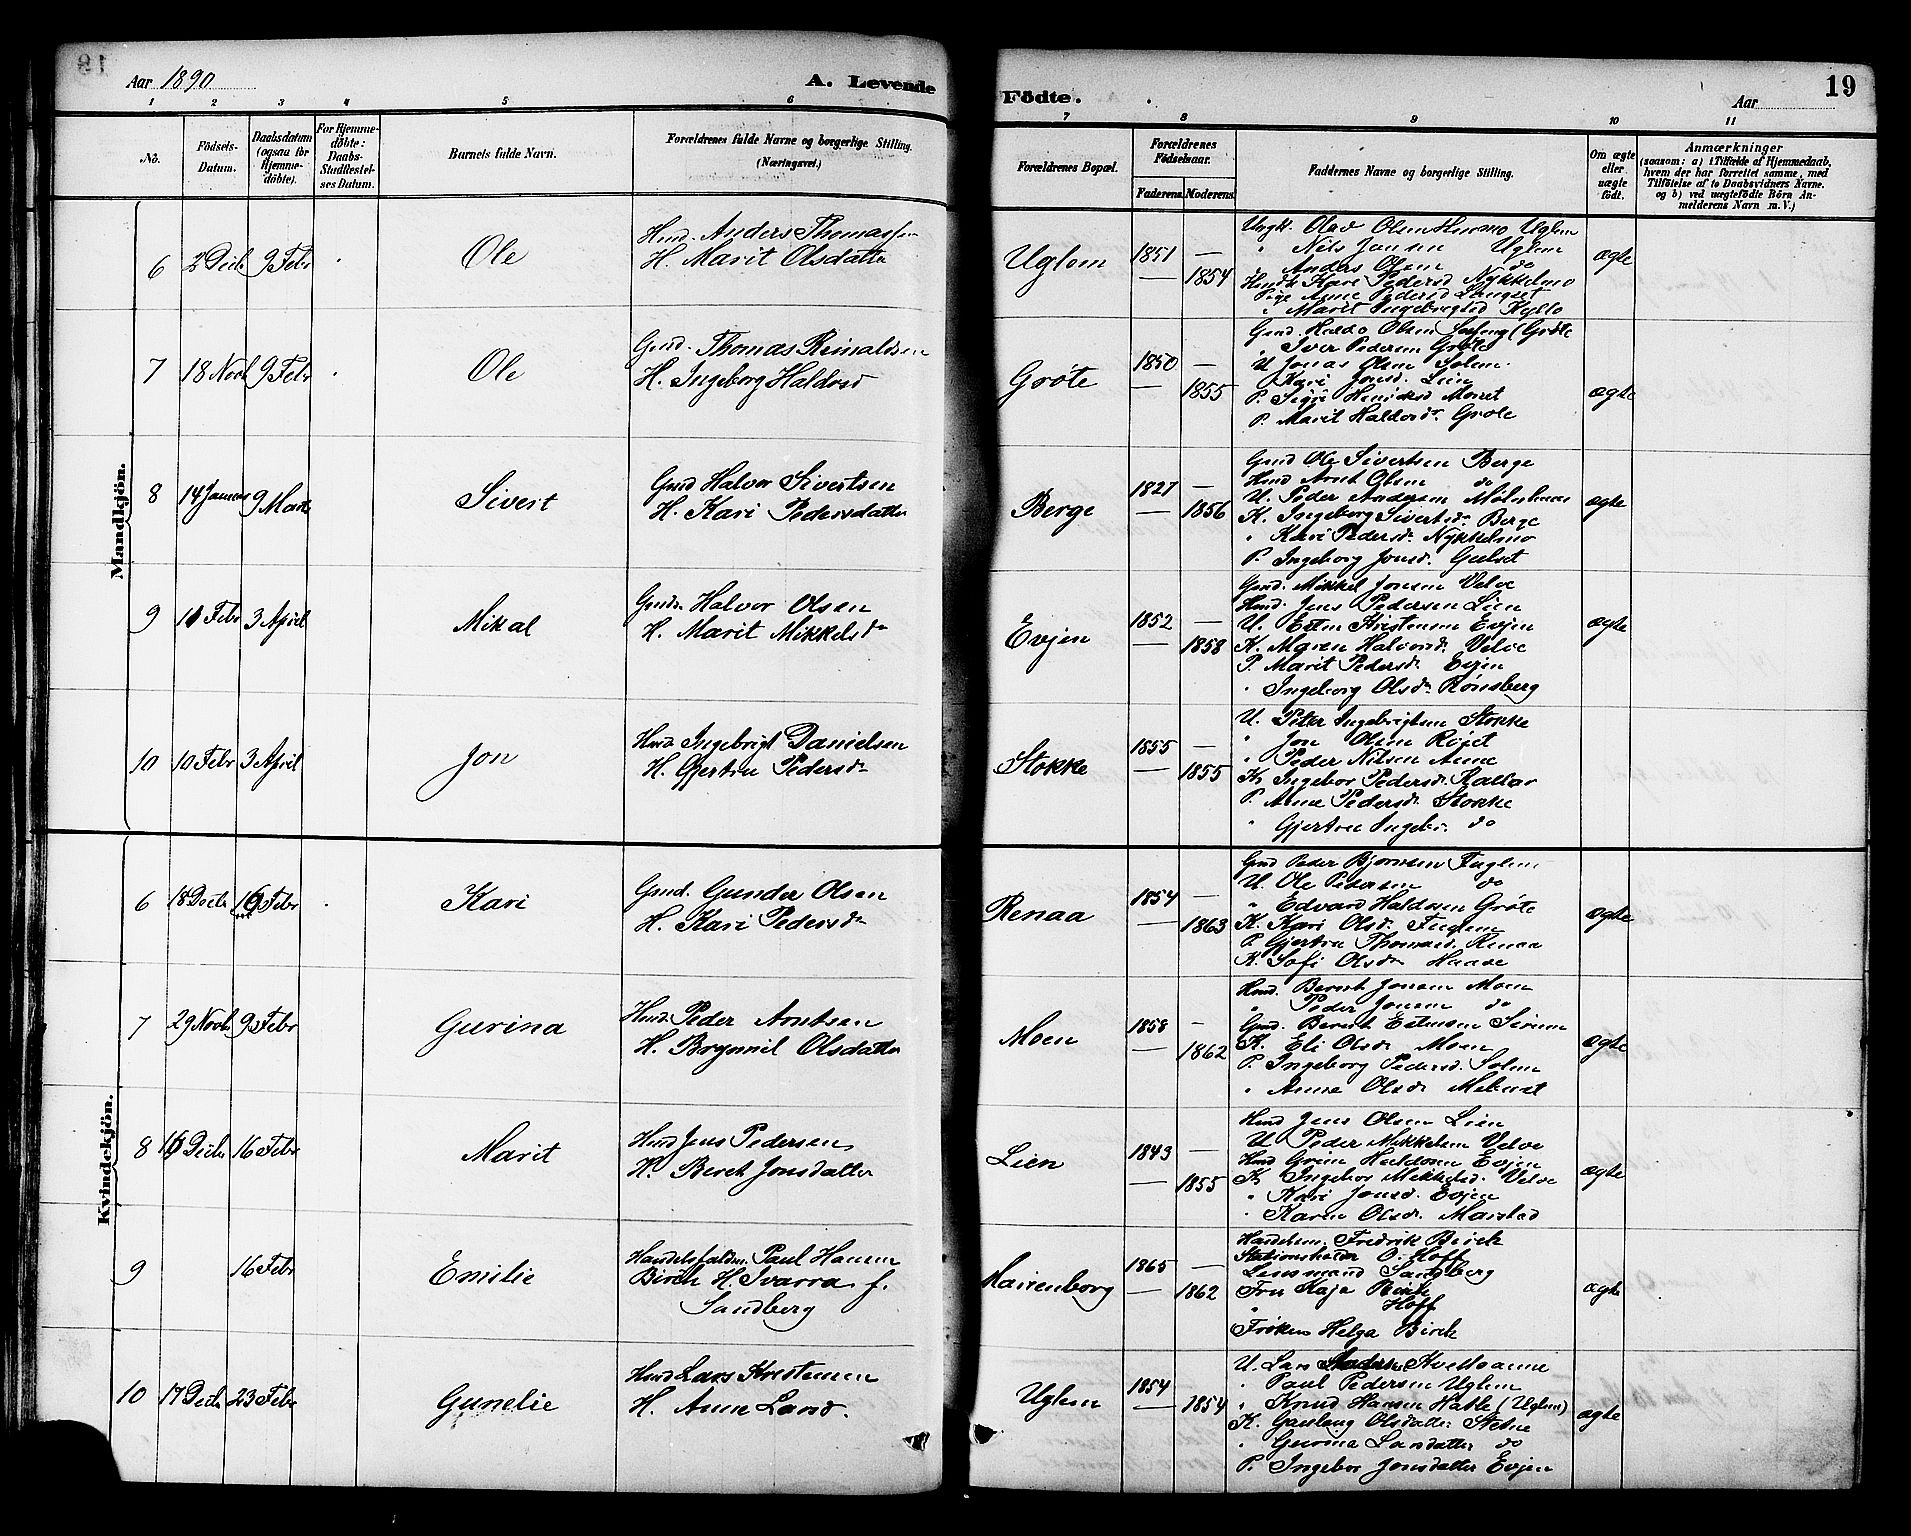 Aar 1890
A. Levende
Födte.
Aar
19
1 2 3 4 5 6 7 8 9 10 11
No.
Födsels-Datum.
Daabsdatum (ogsaa for Hjemmedöbte).
For Hjemmedöbte: Daabs-Stadfæstelses Datum.
Barnets fulde Navn.
Forældrenes fulde Navne og borgerlige Stilling. (Næringsvei.)
Forældrenes Bopæl.
Forældrenes Födselsaar.
Faderens. Moderens.
Faddernes Navne og borgerlige Stilling.
Om ægte eller uægte födt.
Anmærkninger
(saasom: a) i Tilfælde af Hjemmedaab, hvem der har forrettet samme, med Tilföielse af to Daabsvidners Navne. og b) ved uægtefödte Börn Anmelderens Navn m. V.)
Mandkjön.
6 2 Decb 9 Febr Ole
Hmd. Anders Thomassen
H. Marit Olsdatter
Uglem 1851 — 1854
Ungk. Olav Olsen Hermo Uglem
" Nils Jonsen Uglem
" Anders Olsen do
Hmdk Kari Pedersd Nykkelmo
Pige Anne Pedersd Langset
" Marit Ingebrigtsd Kyllo
ægte
7 18 Novb 9 Febr Ole
Gmd. Thomas Reinaldsen
H. Ingeborg Haldosd
Grøte 1850 — 1855
Gmd. Haldo Olsen (Grøte
" Iver Pedersen Grøte
U Jonas Olsen Solem
Kari Jonsd. Lien
P. Sigri Henriksd Morset
P. Marit Haldosdr Grøte
ægte
8 14 Januar 9 Marts Sivert
Gmd Halvor Sivertsen
H. Kari Pedersdatter
Berge 1827 — 1856
Gmd Ole Sivertsen Berge
Hmd Arnt Olsen do
U. Peder Andersen
K. Ingeborg Sivertsdr Berge
" Kari Pedersdr Nykkelmo
P. Ingeborg Jonsd. Gulset
ægte
9 11 Febr 3 April Mikal
Gmdr Halvor Olsen
H. Marit Mikkelsdr
Evjen 1852 — 1858
Gmd. Mikkel Jonsen Velve
Hmd. Jens Pedersen Lien
U. Esten Kristensen Evjen
K. Maren Halvorsd. Velve
P. Marit Pedersdr Evjen
" Ingeborg Olsdr Rønsberg
ægte
10 10 Febr 3 April Jon
Hmd Ingebrigt Danielsen
H. Gjertru Pedersdr
Stokke 1855 — 1855
U. Peter Ingebrigtsen Stokke
" Jon Olsen Røset
" Peder Nilsen Aune
K Ingebor Pedersdr
P. Anne Pedersdr Stokke
" Gjertru Ingebr. do
Kvindekjön.
6 18 Decb 16 Febr Kari
Gmd. Gunder Olsen
H. Kari Pedersdr
Renaa 1854 — 1863
Gmd Peder Bjørnsen Fuglem
U. Ole Pedersen do
" Edvard Haldosen Grøte
K. Kari Olsdr Fuglem
P. Gjertru Thomasd. Renaa
K. Sofi Olsdr Haave
ægte
7 29 Novb 9 Febr Gurina
Hmd. Peder Arntsen
H. Brynnil Olsdatter
Moen 1858 — 1862
Hmd. Bernt Jonsen Moen
" Peder Jonsen do
Gmd. Berent Estensen
K. Eli Olsdr Moen
P. Ingeborg Pedersd. Solem
" Anne Olsdr Mebust
ægte
8 16 Decb 16 Febr Marit
Hmd Jens Pedersen
H. Beret Jonsdatter
Lien 1843 — 1855
Hmd Jens Olsen Lien
U Peder Mikkelsen Velve
Hmd Grim Haldosen Evjen
K Ingebor Mikkelsd. Velve
" Kari Jonsd. Evjen
" Karen Olsdr Marstad
ægte
9 16 Febr Emilie
Handelsfuldm. Paul Hansen
Birch H. Ivarra f.
Sandberg
Mairenborg 1865 — 1862
Handelsm. Fredrik Birch
Stationsholder O. Hoff
Lensmand Sandberg
Fru Kaja Birch
" Hoff
Frøken Helga Birch
ægte
10 17 Decb 23 Febr Gunelie
Hmd Lars Kristensen
H. Anne Larsd.
Uglem 1854 — 1854
U. Lars Kvelloaune
" Paul Pedersen Uglem
" Knud Hansen (Uglem)
K. Gunlaug Olsdatter Stetne
" Gurina Larsdatter do
P. Ingebor Jonsdatter Evjen
ægte